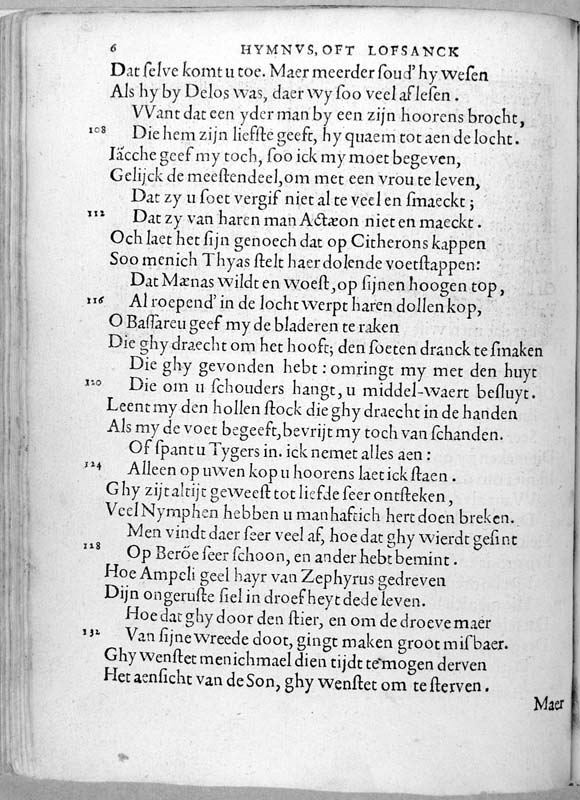 6 HYMNVS, OFT LOFSANCK
Dat selve komt u toe. Maer meerder soud' hy wesen
Als hy by Delos was, daer wy soo veel af lesen.
VVant dat een yder man by een zijn hoorens brocht,
108 Die hem zijn liefste geeft, hy quaem tot aen de locht.
Iäcche geef my toch, soo ick my moet begeven,
Gelijck de meestendeel, om met een vrou te leven,
Dat zy u soet vergif niet al te veel en smaeckt;
112 Dat zy van haren man Actæon niet en maeckt.
Och laet het sijn genoech dat op Citherons kappen
Soo menich Thyas stelt haer dolende voetstappen:
Dat Mænas wildt en woest, op sijnen hoogen top,
116 Al roepend' in de locht werpt haren dollen kop,
O Bassareu geef my de bladeren te raken
Die ghy draecht om het hooft; den soeten dranck te smaken
Die ghy gevonden hebt: omringt my met den huyt
120 Die om u schouders hangt, u middel-waert besluyt.
Leent my den hollen stock die ghy draecht in de handen
Als my de voet begeeft, bevrijt my toch van schanden.
Of spant u Tygers in. ick nemet alles aen:
124 Alleen op uwen kop u hoorens laet ick staen.
Ghy zijt altijt geweest tot liefde seer ontsteken,
Veel Nymphen hebben u manhaftich hert doen breken.
Men vindt daer seer veel af, hoe dat ghy wierdt gesint
128 Op Beröe seer schoon, en ander hebt bemint.
Hoe Ampeli geel hayr van Zephyrus gedreven
Dijn ongeruste siel in droefheyt dede leven.
Hoe dat ghy door den stier, en om de droeve maer
132 Van sijne wreede doot, gingt maken groot misbaer.
Ghy wenstet menichmael dien tijdt te mogen derven
Het aensicht van de Son, ghy wenstet om te sterven.
Maer